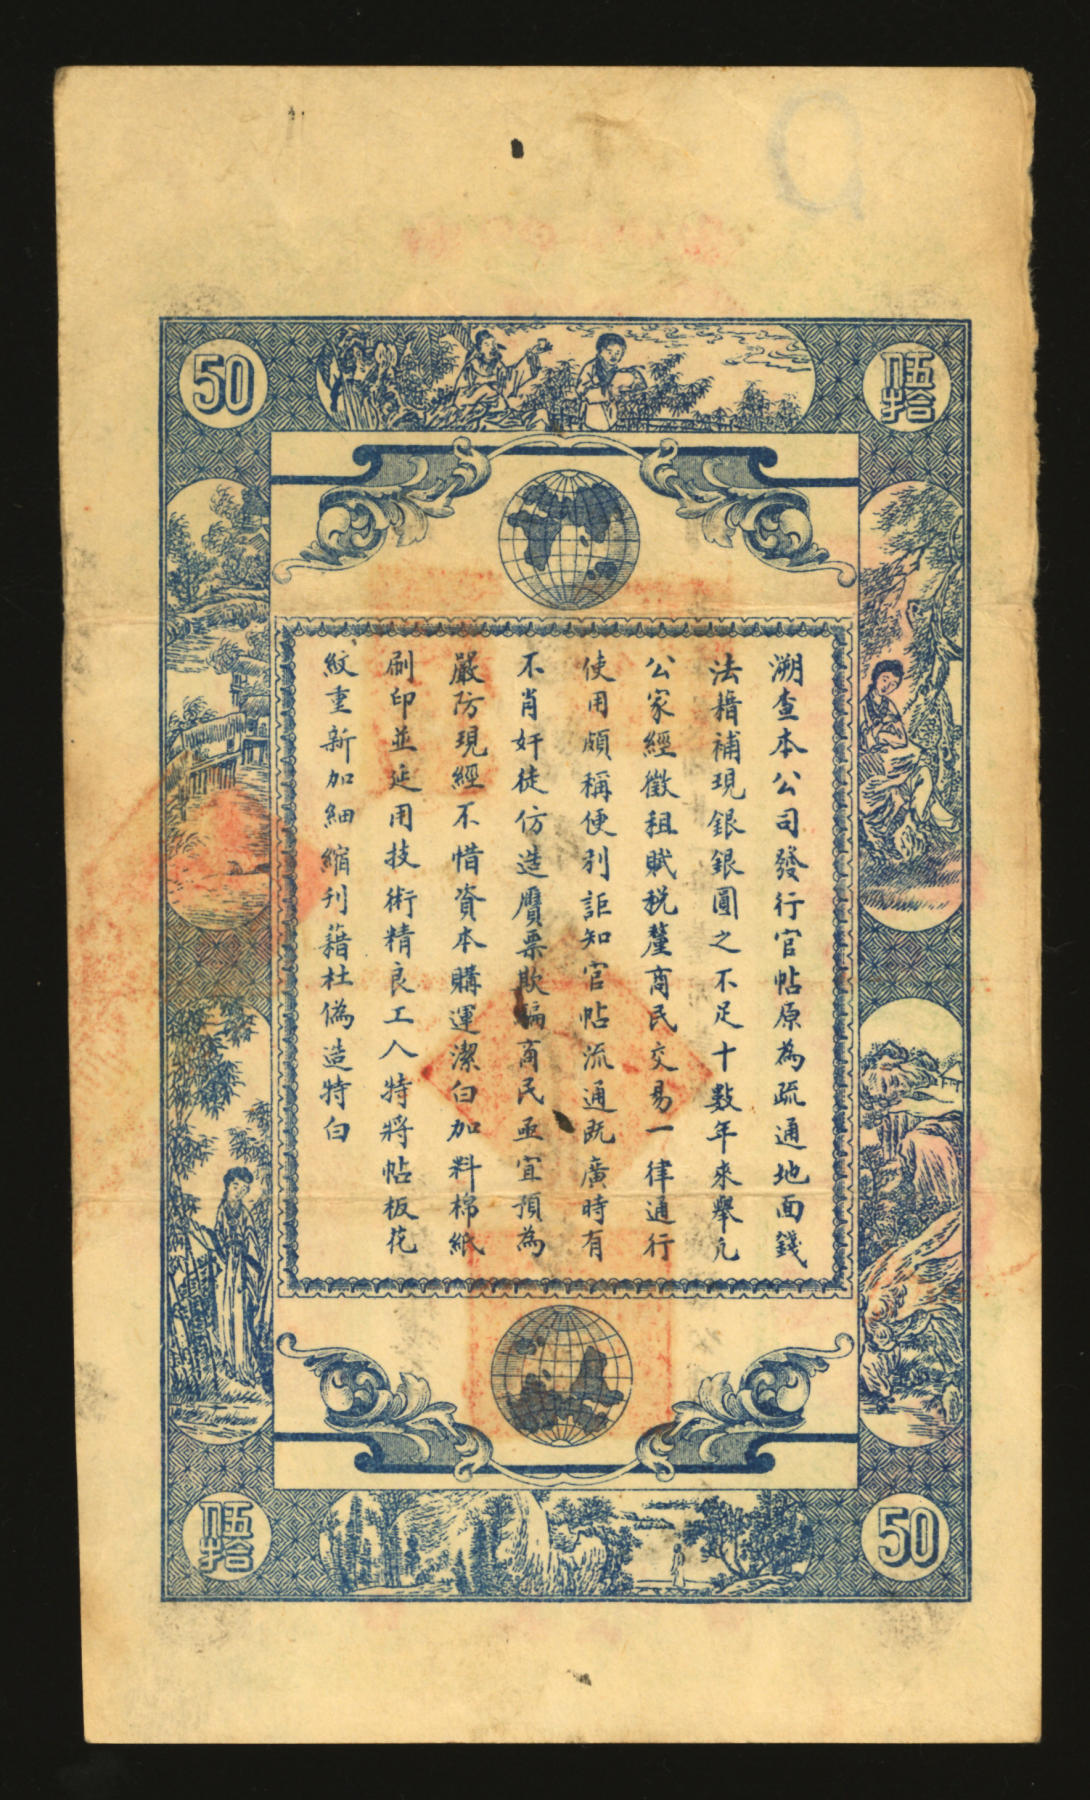 50
伍拾
溯查本公司發行官帖原為疏通地面錢
法藉補現銀銀圓之不足十數年來舉凡
公家經徵租賦稅釐商民交易一律通行
使用頗稱便利詎知官帖流通既廣時有
不肖奸徒仿造贋票欺騙商民亟宜預為
嚴防現經不惜資本購運潔白加料棉紙
刷印並延用技術精良工人特將帖板花
紋重新加細縮刊藉杜偽造特白
伍拾
50